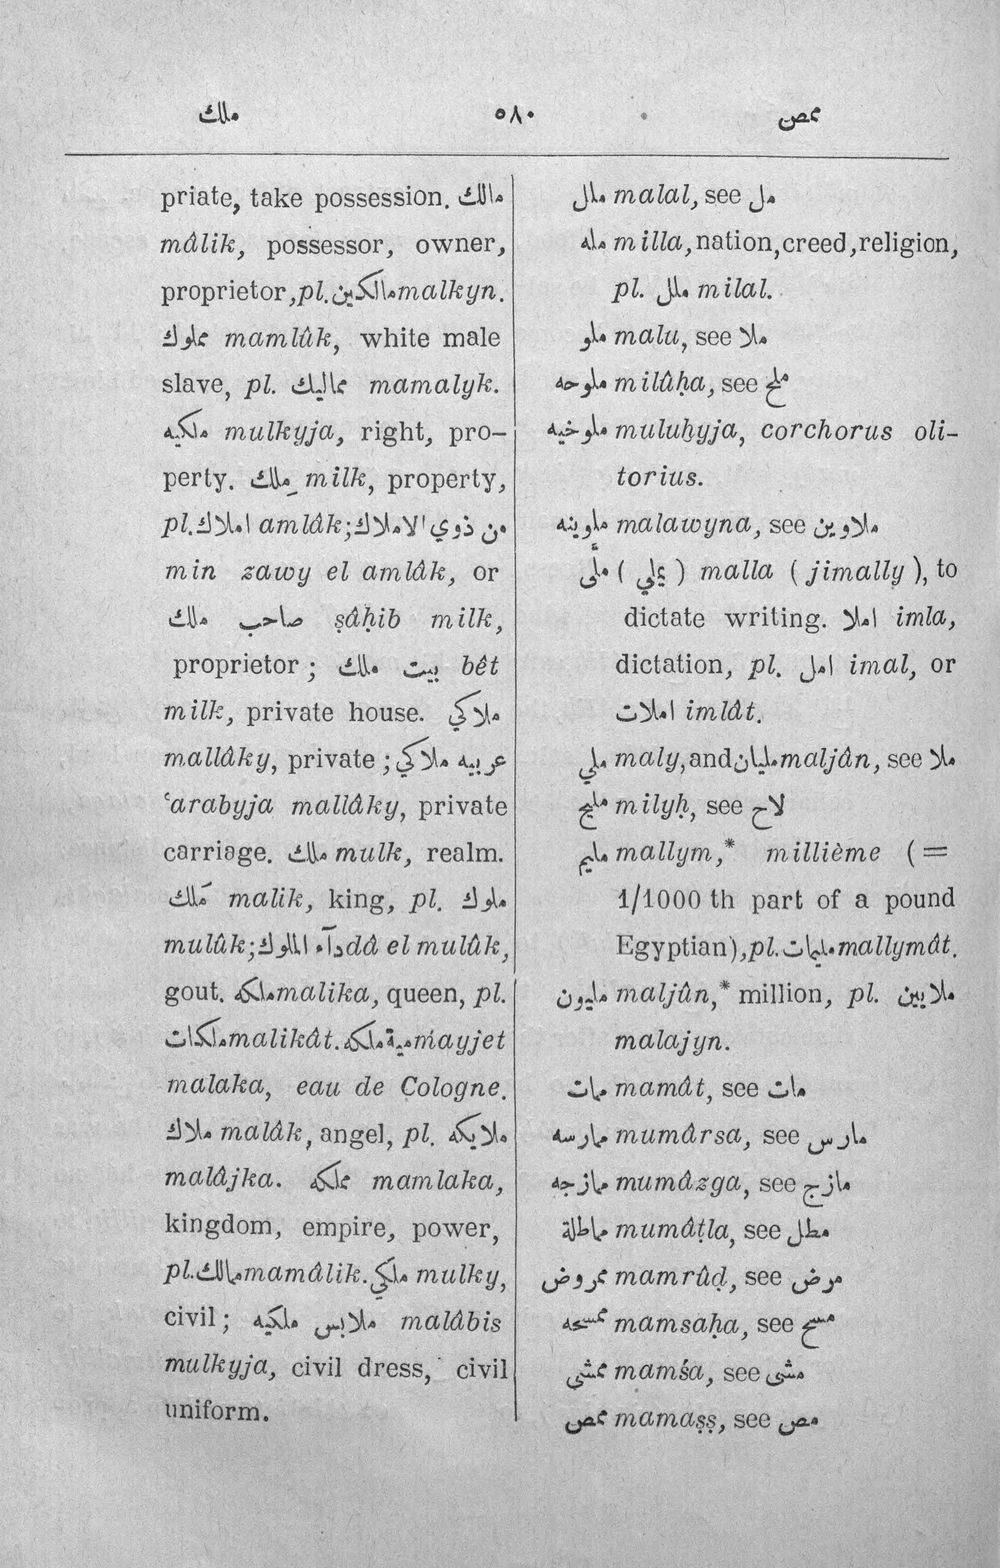 ملك ٥٨٠ ممص
priate, take possession. مالك
mâlik, possessor, owner,
proprietor, pl. مالكين malkyn.
مملوك mamlûk, white male
slave, pl. مماليك mamalyk.
ملكيه mulkyja, right, pro-
perty. ملك milk, property,
pl. املاك amlâk; من ذوي الاملاك
min zawy el amlâk, or
صاحب ملك ṣâḥib milk,
proprietor; بيت ملك bêt
milk, private house. ملاكي
mallâky, private; عربيه ملاكي
ʿarabyja mallâky, private
carriage. ملك mulk, realm.
مَلك malik, king, pl. ملوك
mulûk; دآء الملوك dâ el mulûk,
gout. ملكه malika, queen, pl.
ملكات malikât. مية ملكه mayjet
malaka, eau de Cologne.
ملاك malâk, angel, pl. ملايكه
malâjka. مملكه mamlaka,
kingdom, empire, power,
pl. ممالك mamâlik. ملكي mulky,
civil; ملابس ملكيه malâbis
mulkyja, civil dress, civil
uniform.
ملل malal, see مل
مله milla, nation, creed, religion,
pl. ملل milal.
ملو malu, see ملا
ملوحه milûḥa, see ملح
ملوخيه muluḫyja, corchorus oli-
torius.
ملوينه malawyna, see ملاوين
ملّى (يملي) malla (jimally), to
dictate writing. املا imla,
dictation, pl. امل imal, or
املات imlât.
ملي maly, and مليان maljân, see ملا
مليح milyḥ, see لاح
مليم mallym,* millième (=
1/1000 th part of a pound
Egyptian), pl. مليمات mallymât.
مليون maljûn,* million, pl. ملايين
malajyn.
ممات mamât, see مات
ممارسه mumârsa, see مارس
ممازجه mumâzga, see مازج
مماطلة mumâṭla, see مطل
ممروض mamrûḍ, see مرض
ممسحه mamsaḥa, see مسح
ممشي mamśa, see مشى
ممص mamaṣṣ, see مص